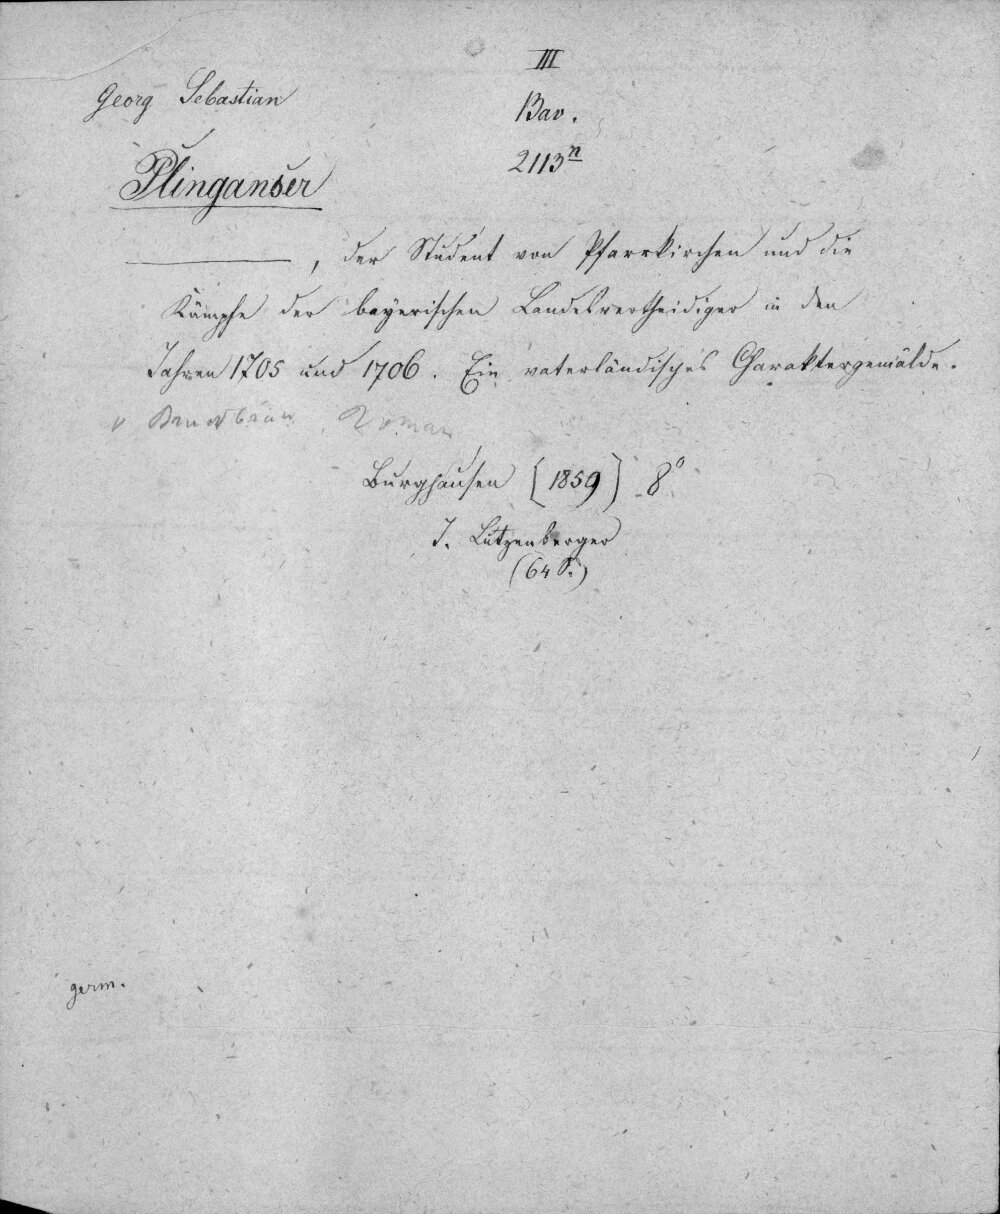 III
Georg Sebastian
Bav.
2113ⁿ
Plinganser
———, der Student von Pfarrkirchen und die
Kämpfe der bayerischen Landesvertheidiger in den
Jahren 1705 und 1706. Ein vaterländisches Charaktergemälde.
v Roman
Burghausen [1859] 8°
J. Lutzenberger
(64 S.)
germ.